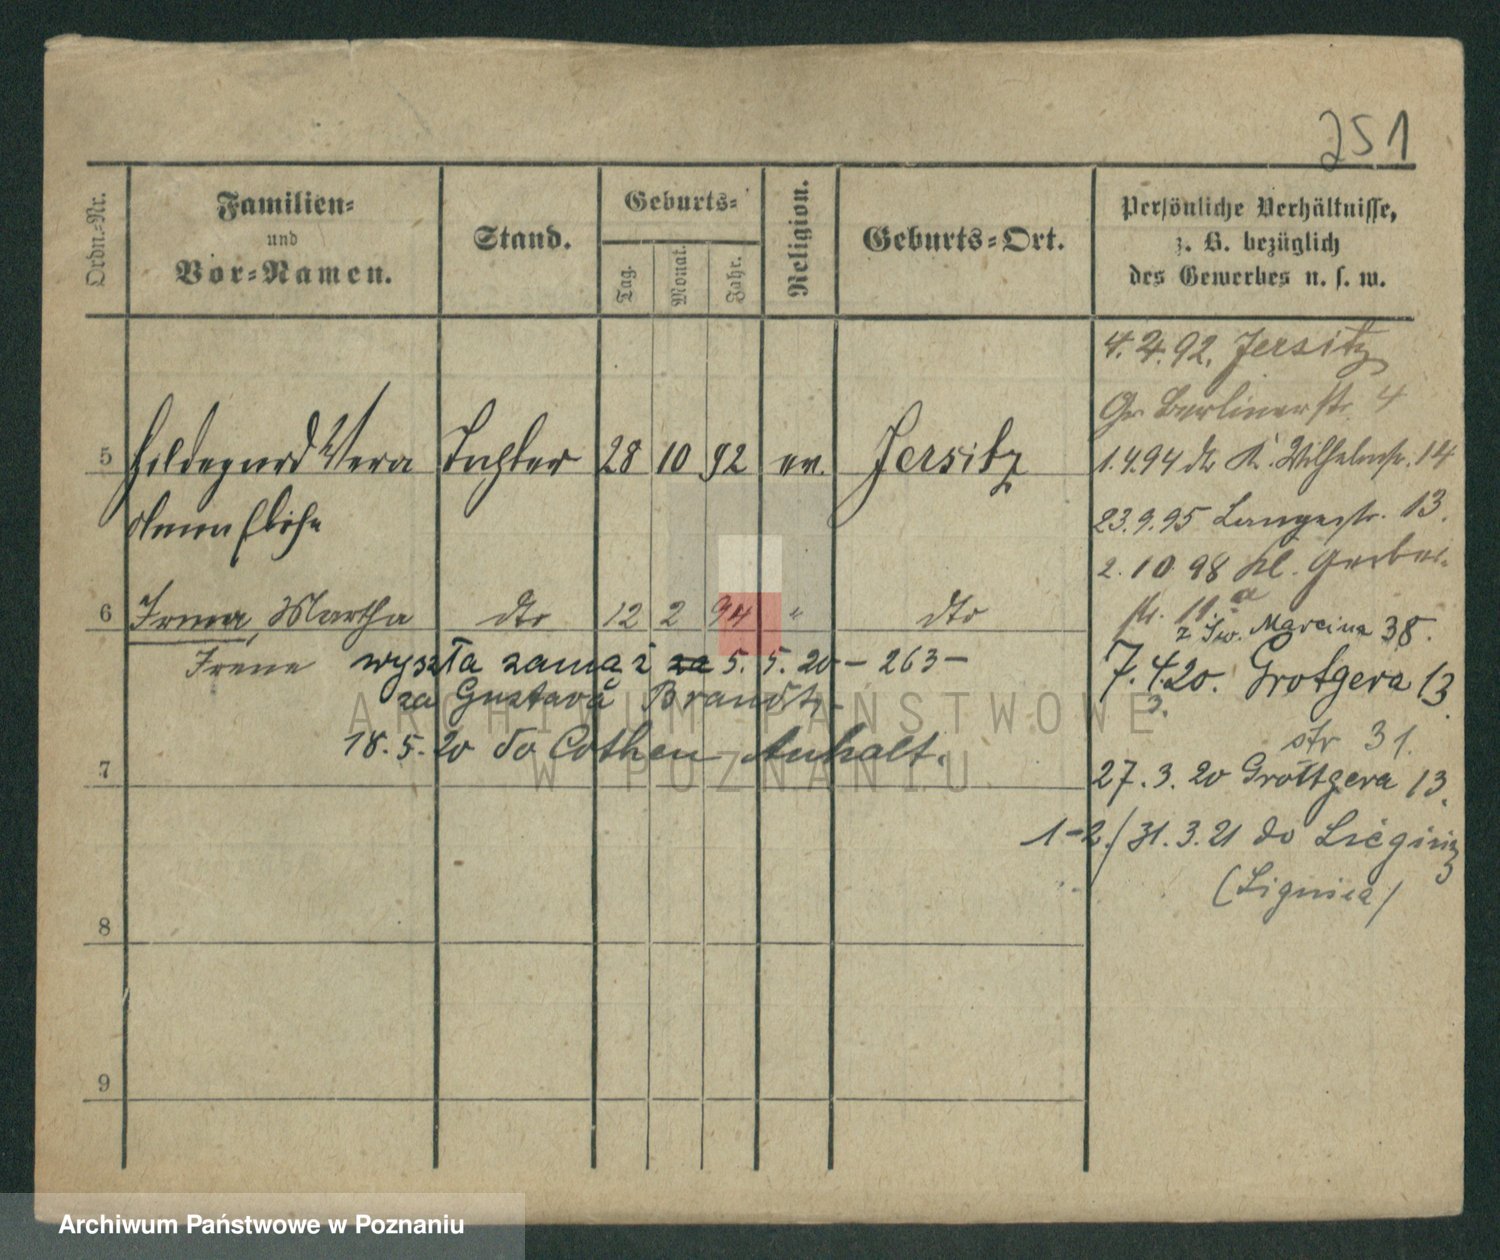 251
Ordn.-Nr.
Familien-
und
Vor-Namen.
Stand.
Geburts-
Tag.
Monat.
Jahr.
Religion.
Geburts-Ort.
Persönliche Verhältnisse,
z. B. bezüglich
des Gewerbes u. s. w.
4. 4. 92. Jersitz
Gr Berlinerstr. 4
5 Hildegard Vera Tochter 28 10 92 ev. Jersitz
1.4.94 dto K. Wilhelmstr. 14
23.9.95 Langestr. 13.
2. 10 98 kl. Gerber-
str. 11.a
6 Irma, Martha dto 12 2 94 " dto
z Św. Marcina 38.
Irene wyszła zamąż za 5. 5. 20 – 263 –
7. 4. 20. Grotgera 13
za Gustava Brandt,
str 31.
18. 5. 20 do Cöthen Anhalt.
7
27. 3. 20 Grottgera 13.
1-2./ 31. 3. 21 do
(Lignica)
8
9
ARCHIWUM PAŃSTWOWE
W POZNANIU
Archiwum Państwowe w Poznaniu